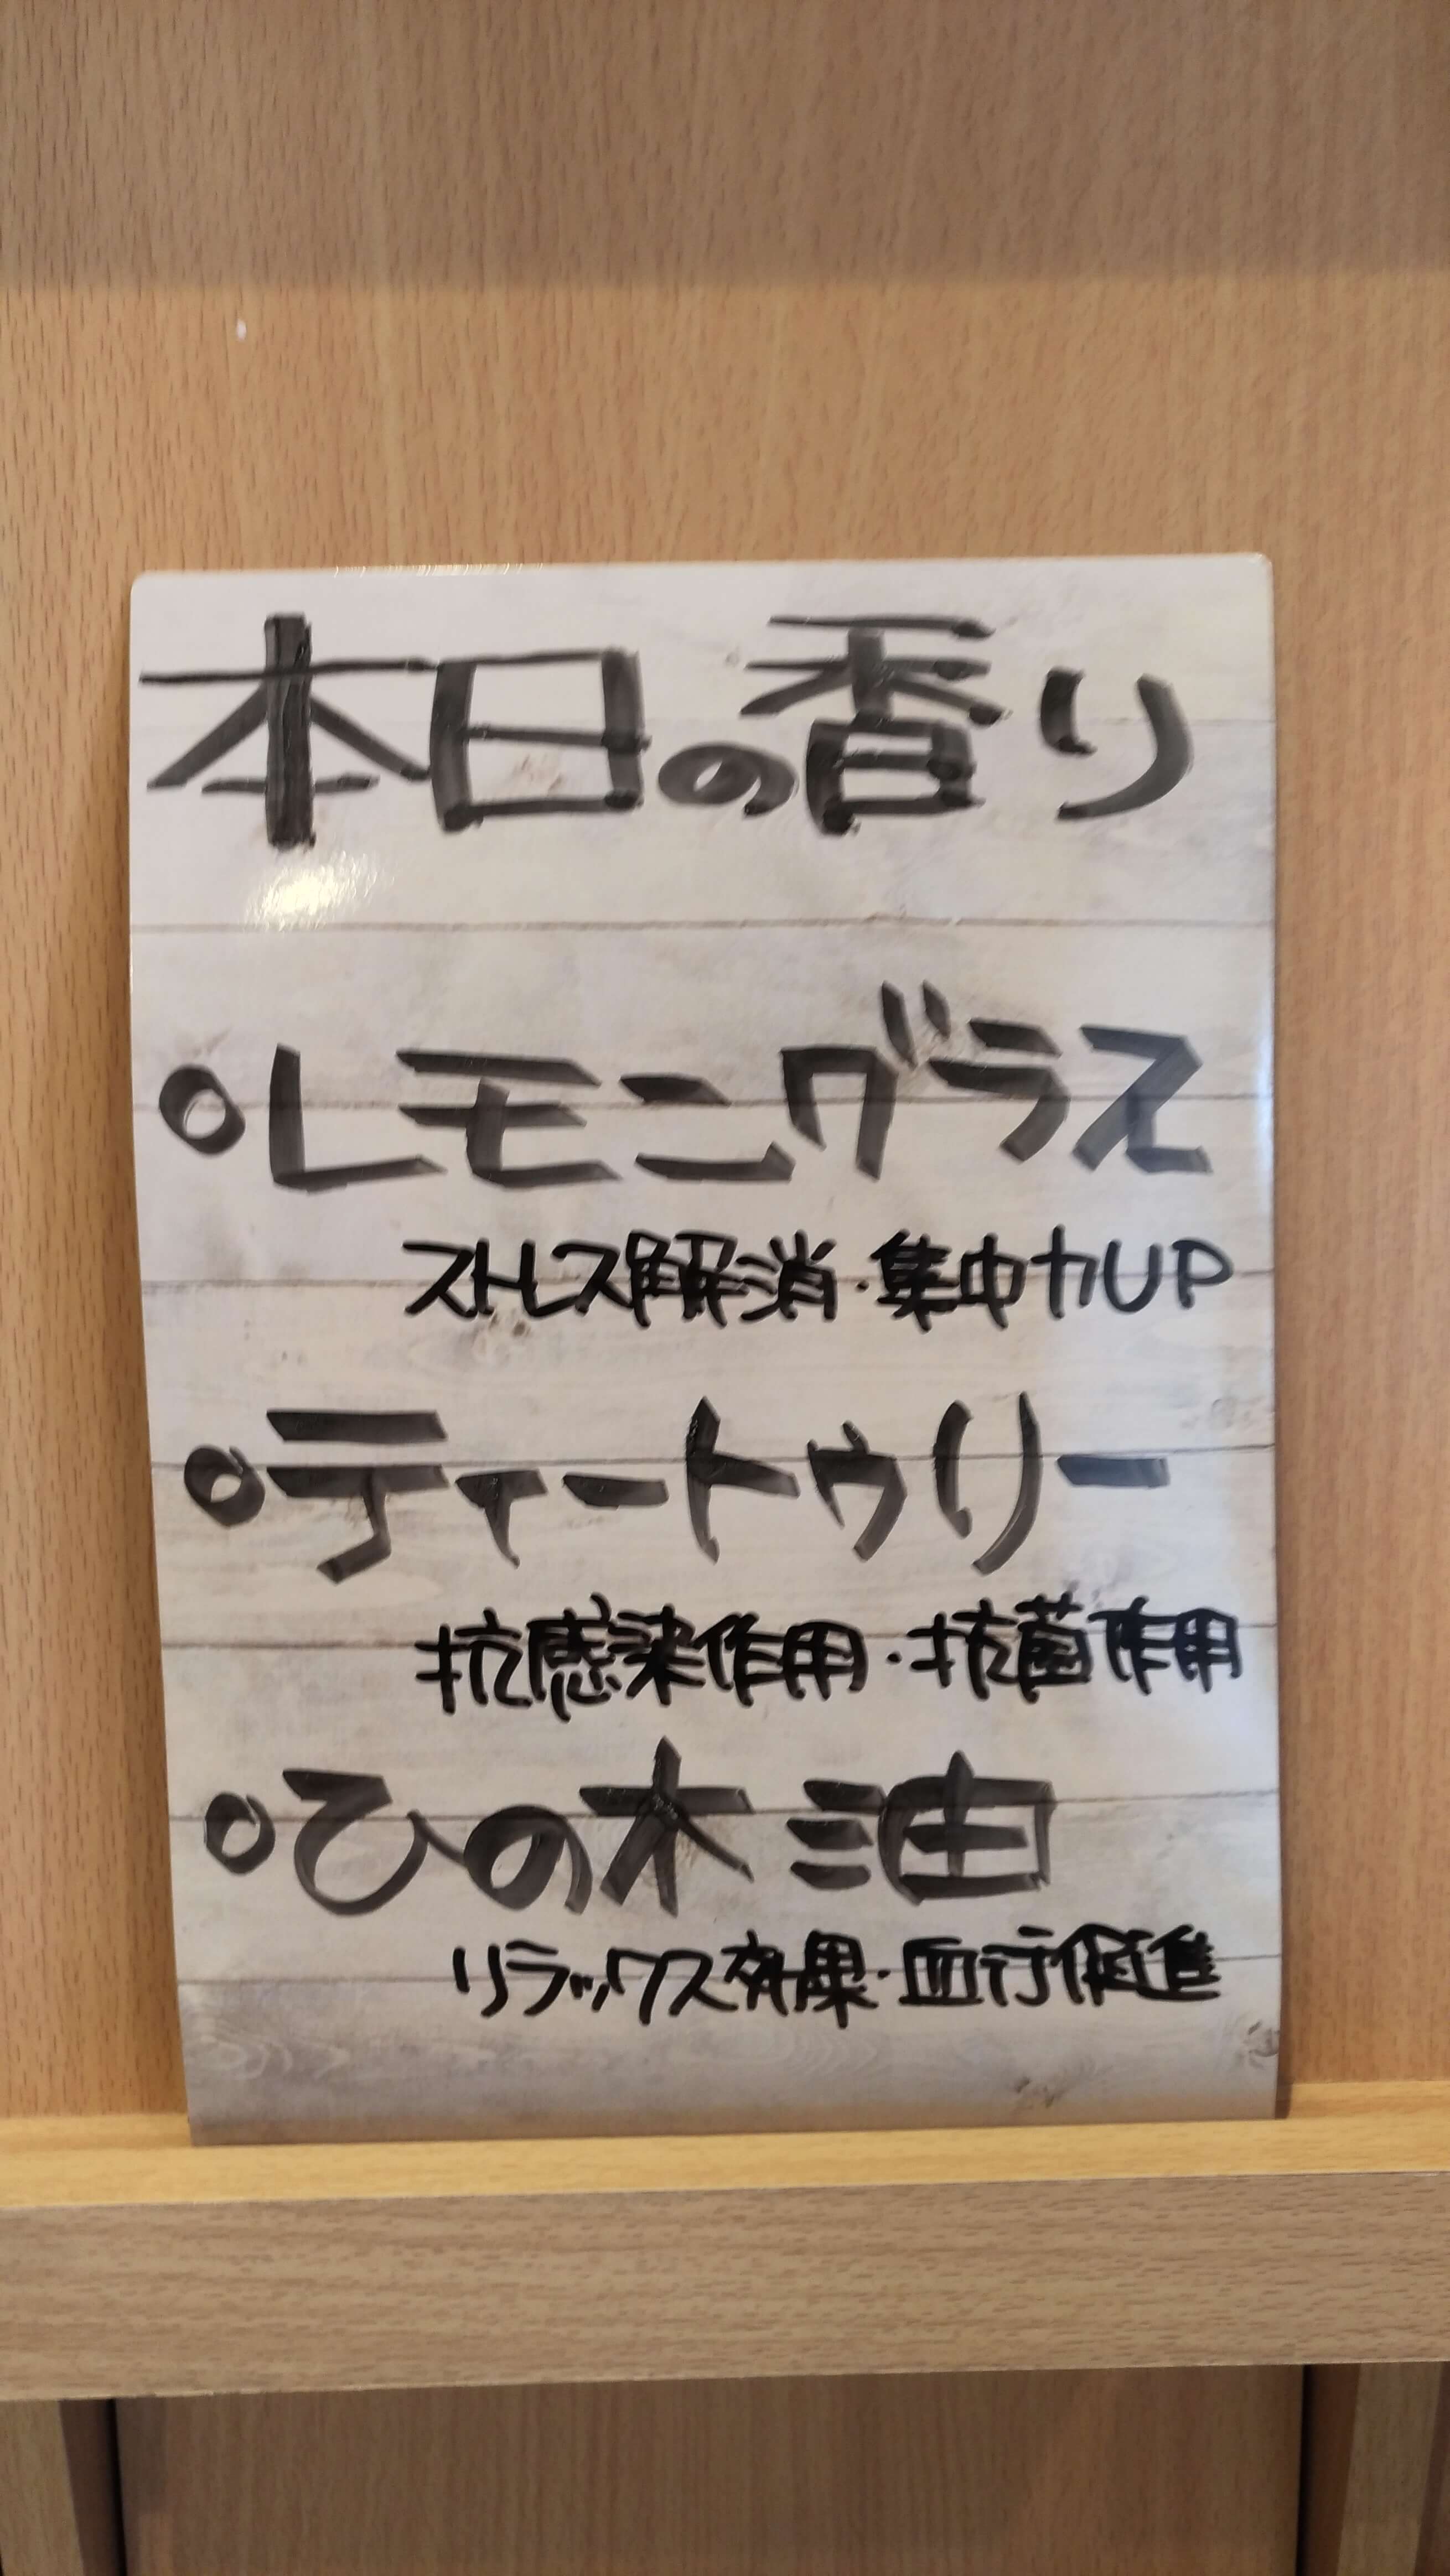 本日の香り
○レモングラス
ストレス解消・集中力UP
○ティートゥリー
抗感染作用・抗菌作用
○ひの木油
リラックス効果・血行促進